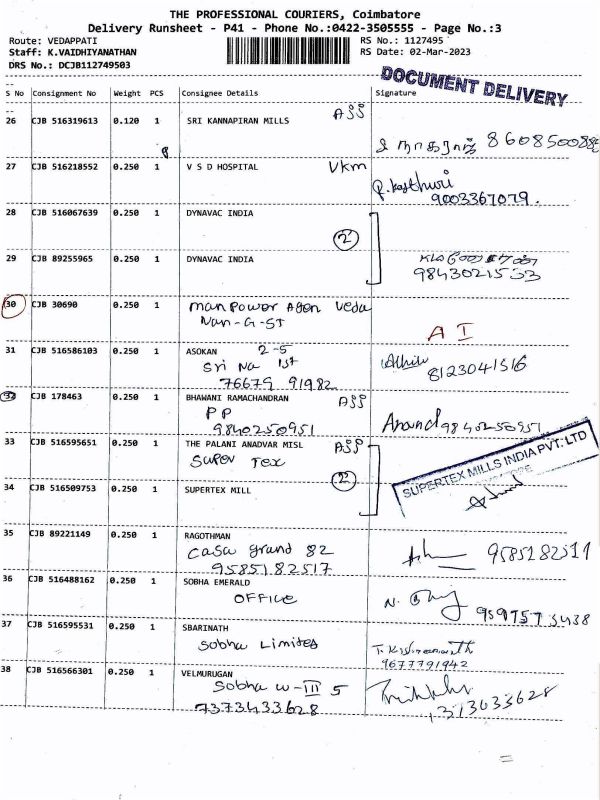 THE PROFESSIONAL COURIERS, Coimbatore
Delivery Runsheet - P41 - Phone No.:0422-3505555 - Page No.:3
Route: VEDAPPATI
RS No.: 1127495
Staff: K.VAIDHIYANATHAN
RS Date: 02-Mar-2023
DRS No.: DCJB112749503
DOCUMENT DELIVERY
S No Consignment No Weight PCS Consignee Details Signature
26 CJB 516319613 0.120 1 SRI KANNAPIRAN MILLS ASS
27 CJB 516218552 0.250 1 V S D HOSPITAL VKM
9003367079.
28 CJB 516067639 0.250 1 DYNAVAC INDIA
2
29 CJB 89255965 0.250 1 DYNAVAC INDIA
30 CJB 30690 0.250 1 Manpower Agen Veda
Nan-G-ST
A I
31 CJB 516586103 0.250 1 ASOKAN 2-5
Sri Na 1st
76679 91982
8123041516
32 CJB 178463 0.250 1 BHAWANI RAMACHANDRAN ASS
PP
9840250951
Anand 9840250951
33 CJB 516595651 0.250 1 THE PALANI ANADVAR MISL ASS
Super Tex
2
SUPERTEX MILLS INDIA PVT. LTD
34 CJB 516509753 0.250 1 SUPERTEX MILL
35 CJB 89221149 0.250 1 RAGOTHMAN
Casa grand 82
9585182517
36 CJB 516488162 0.250 1 SOBHA EMERALD
OFFICE
37 CJB 516595531 0.250 1 SBARINATH
Sobha Limited
9677791942
38 CJB 516566301 0.250 1 VELMURUGAN
Sobha W-III 5
7373433628